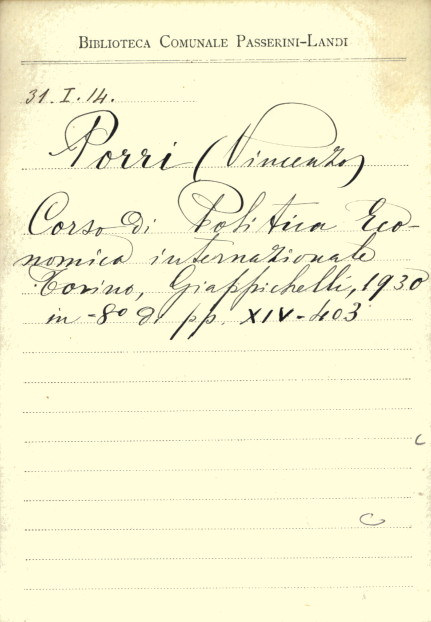 BIBLIOTECA COMUNALE PASSERINI-LANDI
31.I.14.
Porri (Vincenzo)
Corso di Politica Eco-
nomica internazionale
Torino, Giappichelli, 1930
in-8º di pp. XIV-403